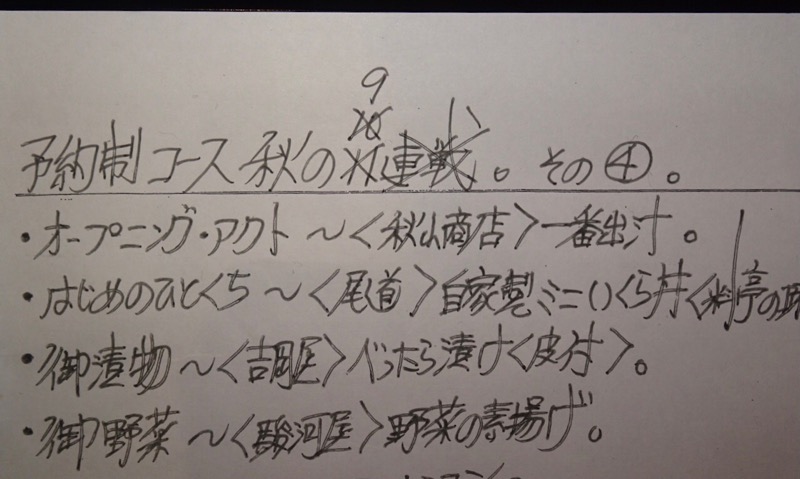 9
予約制コース秋の連戦。その④。
・オープニング・アクト~<秋山商店>一番出汁。
・はじめのひとくち~<尾道>自家製ミニいくら丼<料亭の味
・御漬物~<吉岡屋>べったら漬け<皮付>。
・御野菜~<駿河屋>野菜の素揚げ。